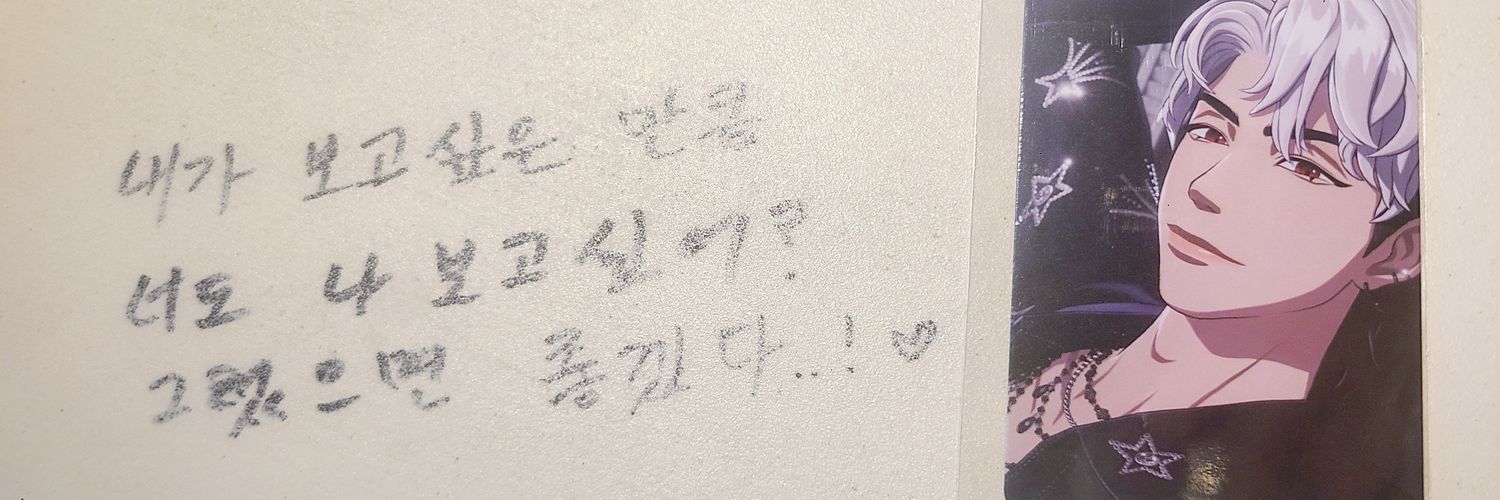 내가 보고싶은 만큼
너도 나 보고싶어?
그렜으면 좋겠다...! ♡